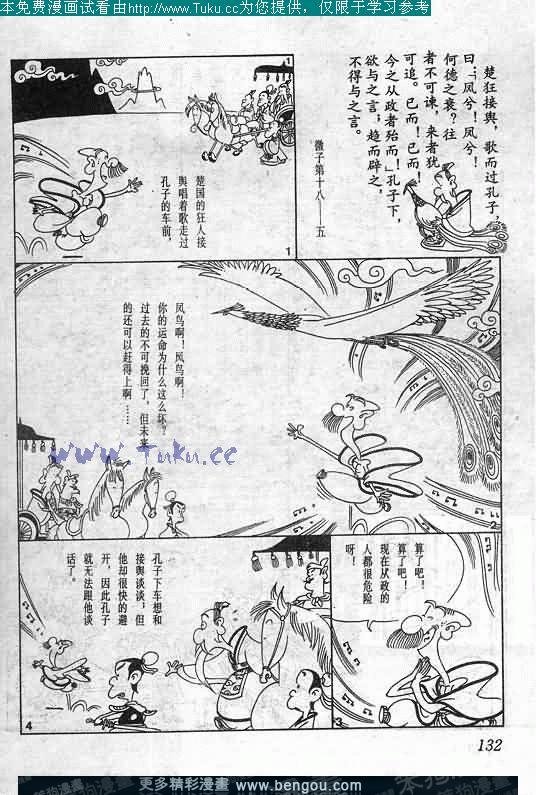 本免费漫画试看由http://www.Tuku.cc为您提供，仅限于学习参考
楚狂接舆，歌而过孔子，
曰：「凤兮！凤兮！
何德之衰？往
者不可谏，来者犹
可追。已而！已而！
今之从政者殆而！」孔子下，
欲与之言，趋而辟之，
不得与之言。
微子第十八——五
1
楚国的狂人接
舆唱着歌走过
孔子的车前，
1
凤鸟啊！凤鸟啊！
你的运命为什么这么坏？
过去的不可挽回了，但未来
的还可以赶得上啊……
www.Tuku.cc
2
算了吧！
算了吧！
现在从政的
人都很危险
呀！
3
孔子下车想和
接舆谈谈；但
他却很快的避
开，因此孔子
就无法跟他谈
话了。
4
132
更多精彩漫画 www.bengou.com